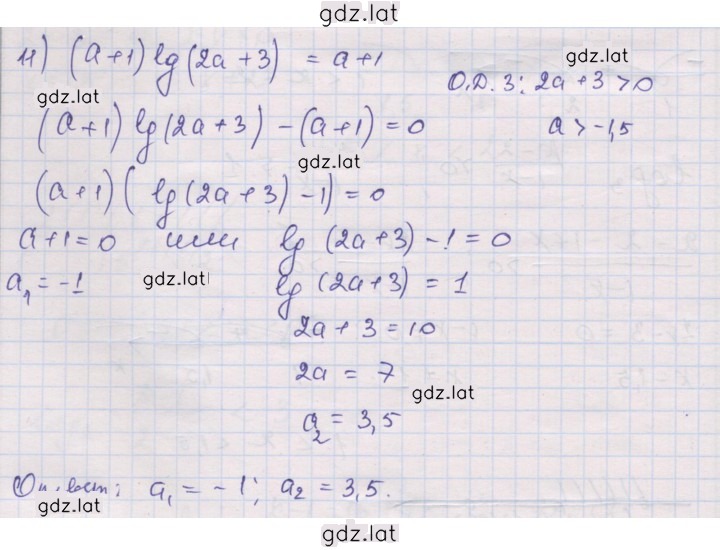 gdz.lat
11) (a+1) lg(2a+3) = a+1
gdz.lat
О.Д.З: 2a+3>0
gdz.lat
(a+1) lg(2a+3) -(a+1)=0
a>-1,5
gdz.lat
(a+1)( lg(2a+3)-1)=0
a+1=0 или lg (2a+3)-1=0
a₁=-1
gdz.lat
lg (2a+3) = 1
2a+3=10
2a = 7
gdz.lat
a₂=3,5
Ответ: a₁=-1; a₂=3,5.
gdz.lat
gdz.lat